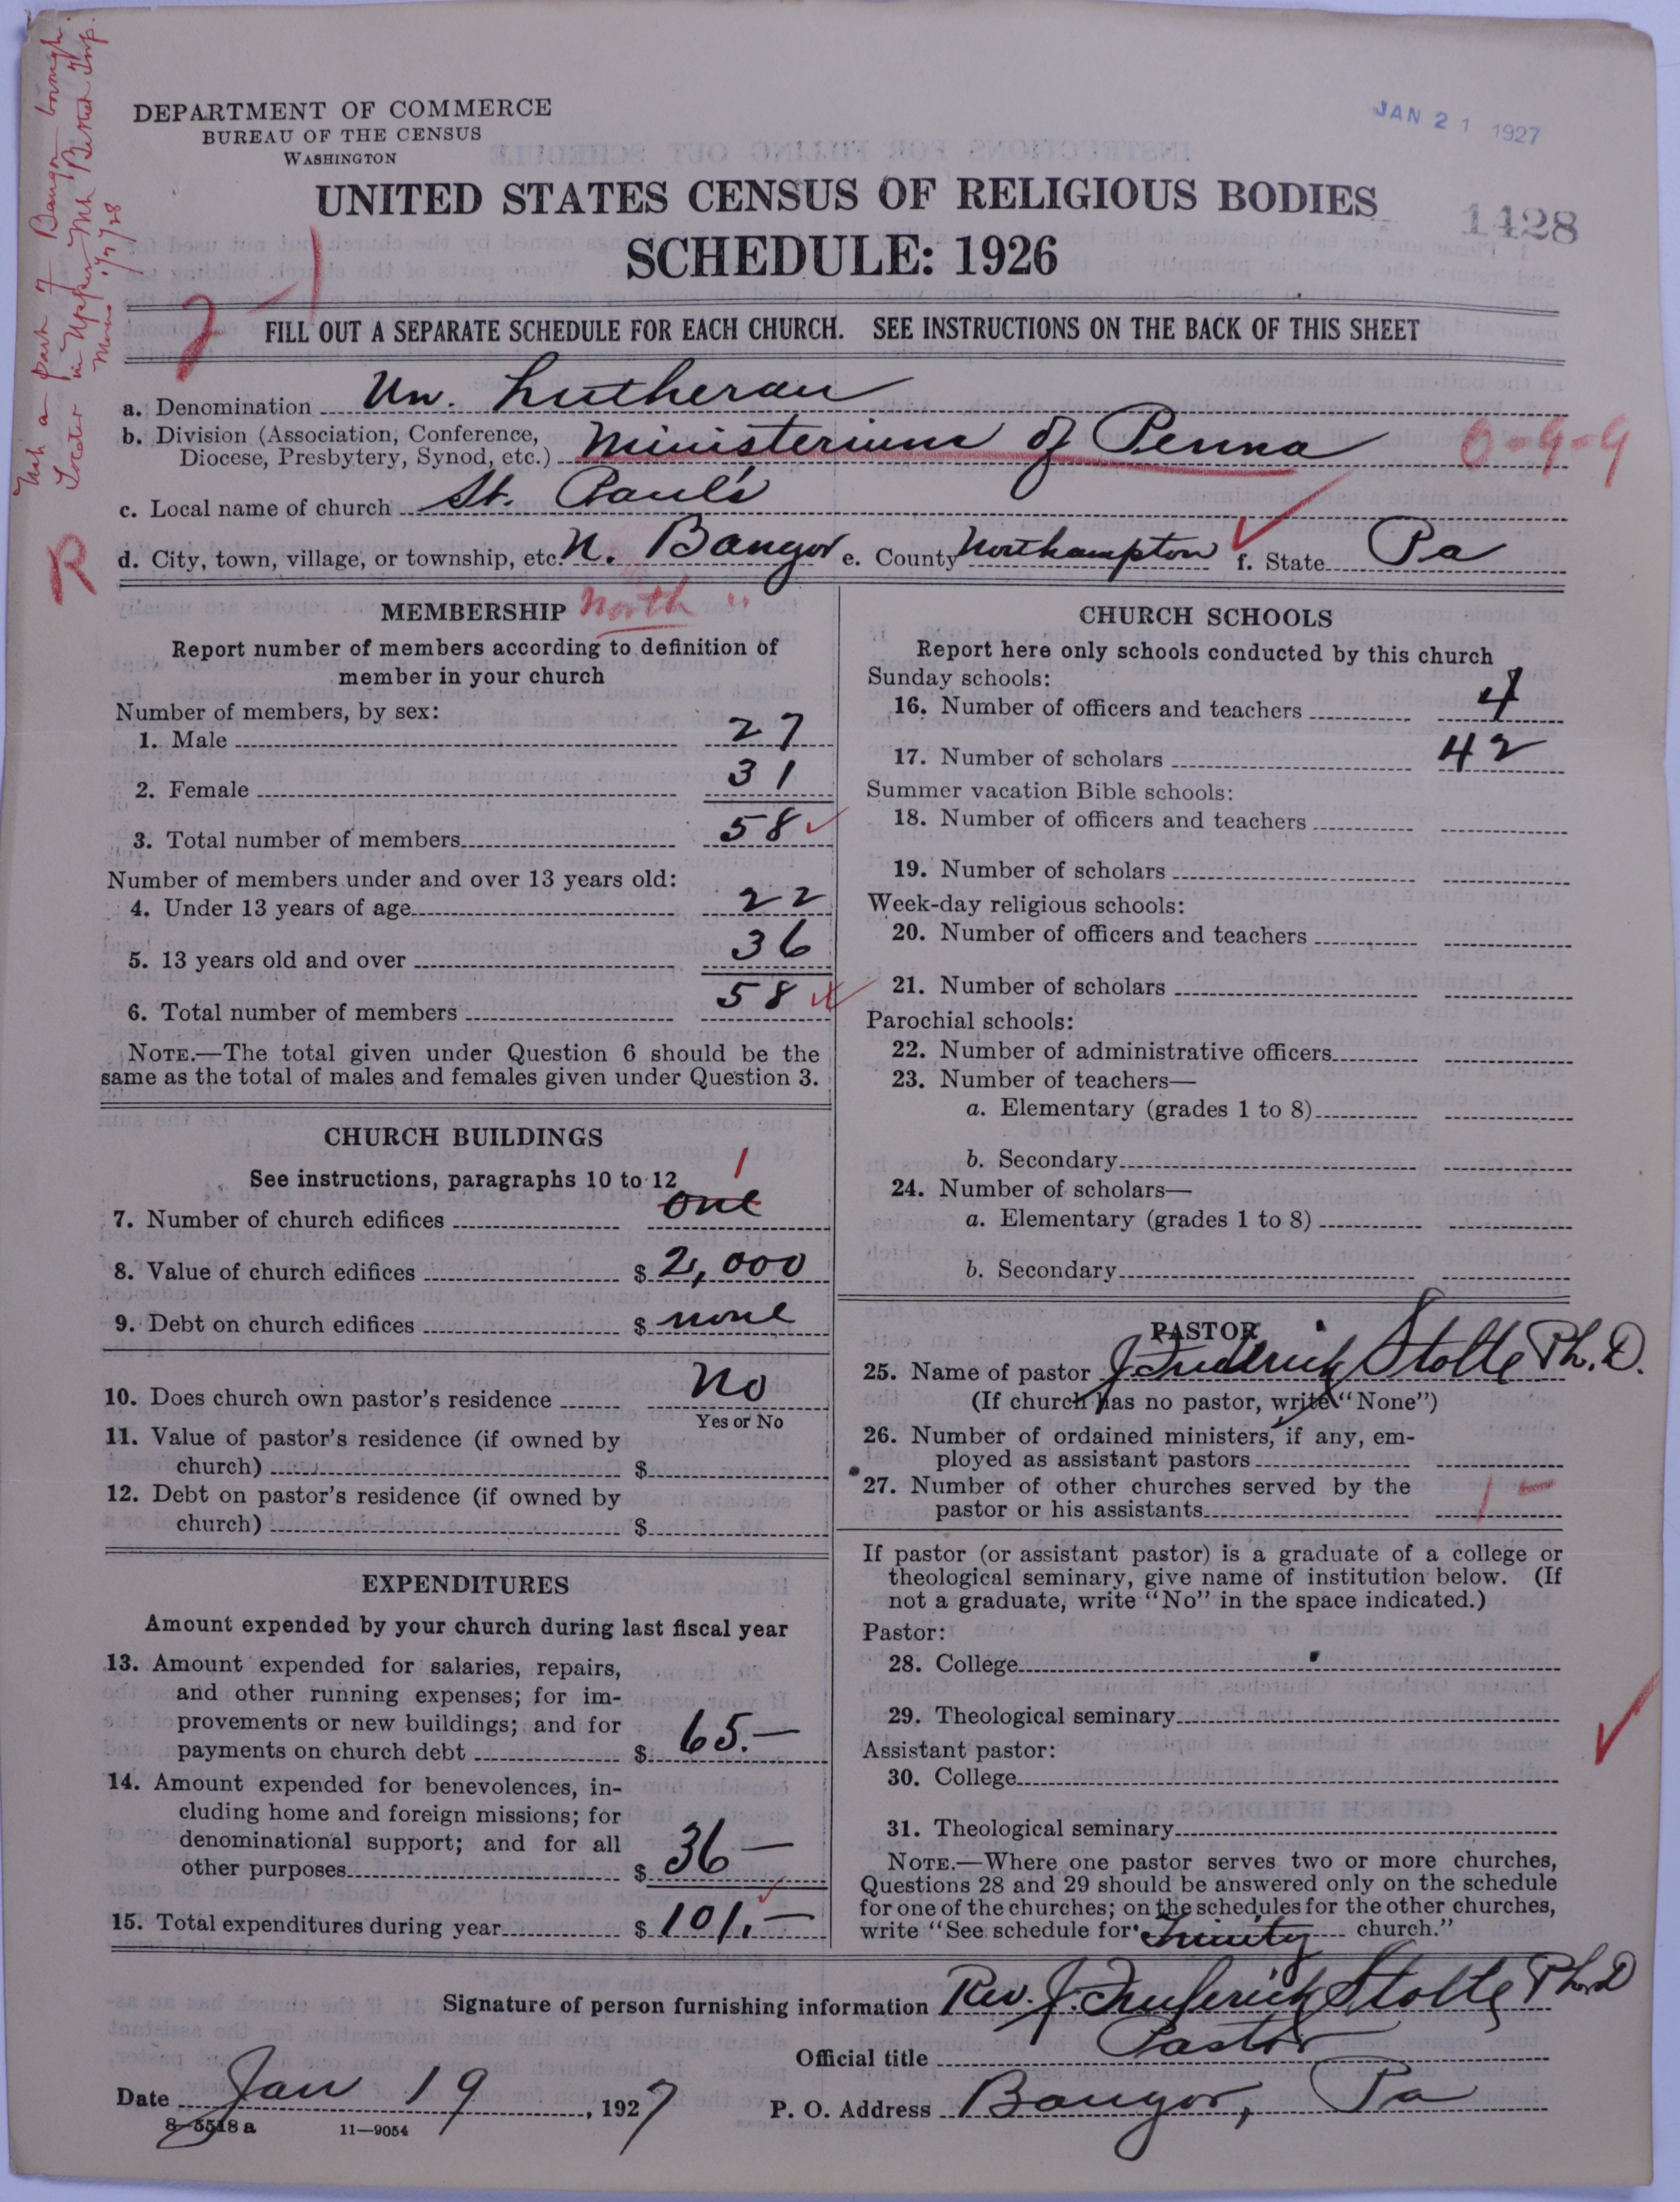 Not a part of Bangor borough.
Located in Upper Mt Bethel Twp.
JAN 21 1927
DEPARTMENT OF COMMERCE
BUREAU OF THE CENSUS
WASHINGTON
UNITED STATES CENSUS OF RELIGIOUS BODIES
1428
SCHEDULE: 1926
FILL OUT A SEPARATE SCHEDULE FOR EACH CHURCH. SEE INSTRUCTIONS ON THE BACK OF THIS SHEET
a. Denomination Un. Lutheran
b. Division (Association, Conference, Diocese, Presbytery, Synod, etc.) Ministerium of Penna 0-9-9
c. Local name of church St. Paul's
d. City, town, village, or township, etc. N. Bangor e. County Northampton f. State Pa
MEMBERSHIP North "
Report number of members according to definition of
member in your church
Number of members, by sex:
1. Male 27
2. Female 31
3. Total number of members 58
Number of members under and over 13 years old:
4. Under 13 years of age 22
5. 13 years old and over 36
6. Total number of members 58
NOTE.—The total given under Question 6 should be the
same as the total of males and females given under Question 3.
CHURCH BUILDINGS
See instructions, paragraphs 10 to 12
1
7. Number of church edifices one
8. Value of church edifices $ 2,000
9. Debt on church edifices $ none
10. Does church own pastor's residence No
Yes or No
11. Value of pastor's residence (if owned by
church) $
12. Debt on pastor's residence (if owned by
church) $
EXPENDITURES
Amount expended by your church during last fiscal year
13. Amount expended for salaries, repairs,
and other running expenses; for im-
provements or new buildings; and for
payments on church debt $ 65.—
14. Amount expended for benevolences, in-
cluding home and foreign missions; for
denominational support; and for all
other purposes $ 36 —
15. Total expenditures during year $ 101.—
CHURCH SCHOOLS
Report here only schools conducted by this church
Sunday schools:
16. Number of officers and teachers 4
17. Number of scholars 42
Summer vacation Bible schools:
18. Number of officers and teachers
19. Number of scholars
Week-day religious schools:
20. Number of officers and teachers
21. Number of scholars
Parochial schools:
22. Number of administrative officers
23. Number of teachers—
a. Elementary (grades 1 to 8)
b. Secondary
24. Number of scholars—
a. Elementary (grades 1 to 8)
b. Secondary
PASTOR
25. Name of pastor J. Frederick Stolte Ph. D.
(If church has no pastor, write "None")
26. Number of ordained ministers, if any, em-
ployed as assistant pastors
27. Number of other churches served by the
pastor or his assistants 1 -
If pastor (or assistant pastor) is a graduate of a college or
theological seminary, give name of institution below. (If
not a graduate, write "No" in the space indicated.)
Pastor:
28. College
29. Theological seminary
Assistant pastor:
30. College
31. Theological seminary
NOTE.—Where one pastor serves two or more churches,
Questions 28 and 29 should be answered only on the schedule
for one of the churches; on the schedules for the other churches,
write "See schedule for Trinity church."
Signature of person furnishing information Rev. J. Frederick Stolte Ph.D
Official title Pastor
Date Jan 19, 1927
P. O. Address Bangor, Pa
8-5518 a 11—9054